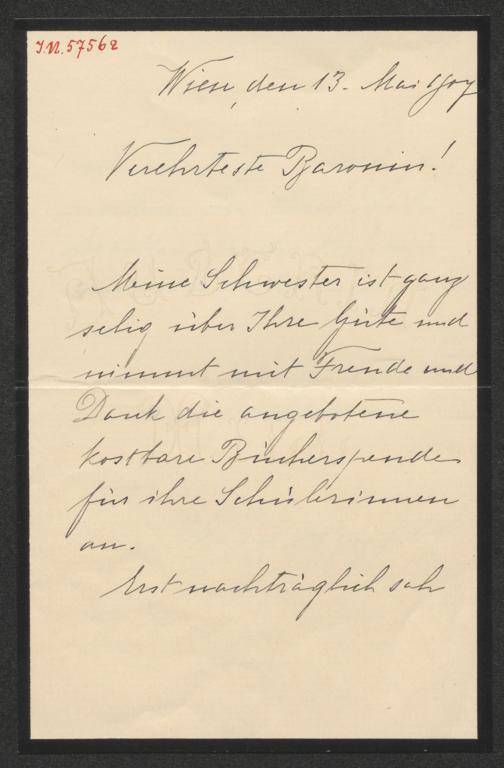 I.N. 57562
Wien, den 13. Mai 1907
Verehrteste Baronin!
Meine Schwester ist ganz
selig über Ihre Güte und
nimmt mit Freude und
Dank die angebotene
kostbare Bücherspende
für ihre Schülerinnen
an.
Erst nachträglich sah